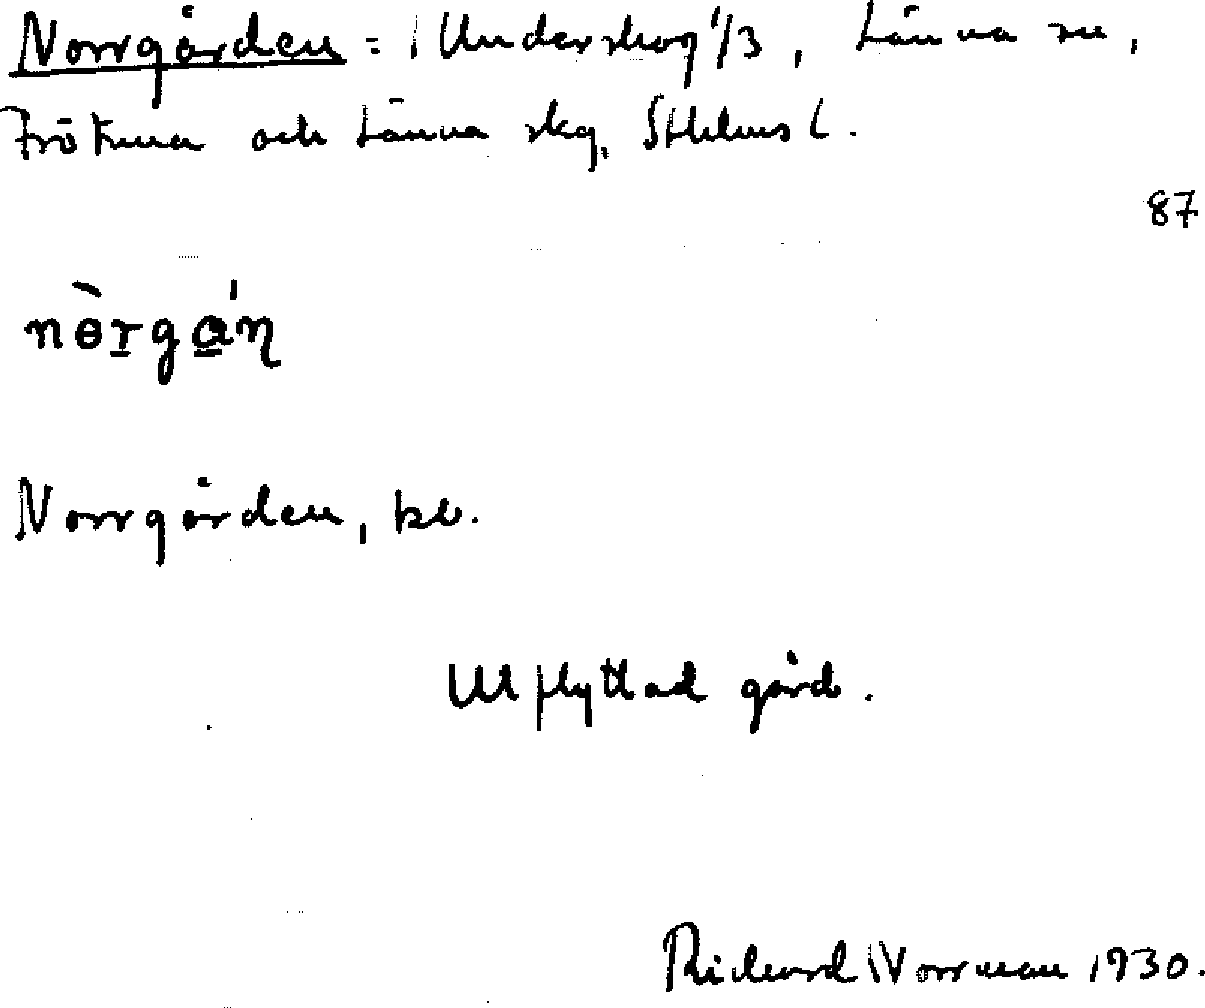 Norrgården = 1 Underskog 1/3, Länna sn,
Frötuna och Länna skg, Sthlms l.
87
nò̀rga̲'n
Norrgården, bb.
Utflyttad gård.
Richard Norrman 1930.